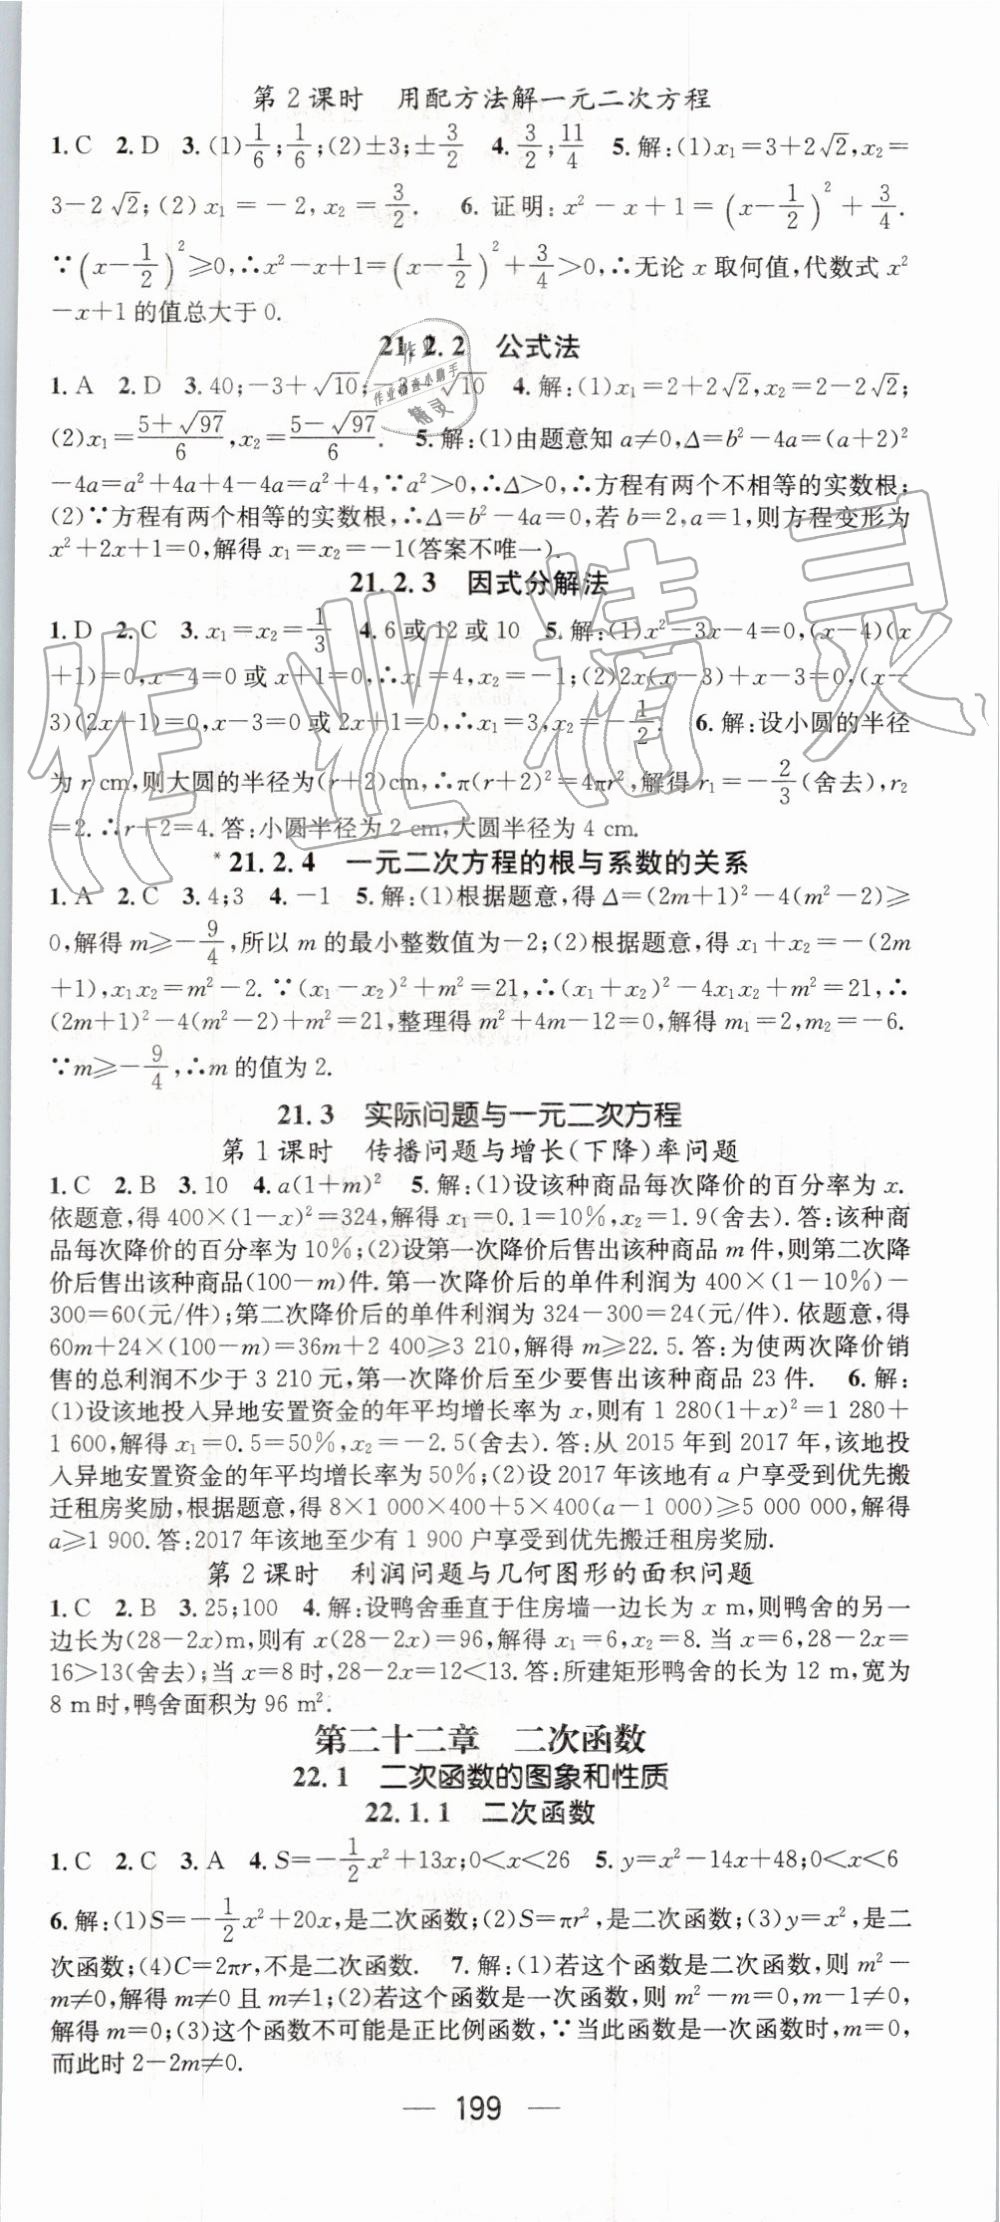 第2课时　用配方法解一元二次方程
1.C　2.D　3.(1)1/6;1/6;(2)±3;±3/2　4.3/2;11/4　5.解:(1)x₁=3+2√2,x₂=
3-2√2;(2)x₁=-2,x₂=3/2.　6.证明:x²-x+1=(x-1/2)²+3/4.
∵(x-1/2)²≥0,∴x²-x+1=(x-1/2)²+3/4>0,∴无论x取何值,代数式x²
-x+1的值总大于0.
21.2.2　公式法
1.A　2.D　3.40;-3+√10;-3-√10　4.解:(1)x₁=2+2√2,x₂=2-2√2;
(2)x₁=(5+√97)/6,x₂=(5-√97)/6.　5.解:(1)由题意知a≠0,Δ=b²-4a=(a+2)²
-4a=a²+4a+4-4a=a²+4,∵a²>0,∴Δ>0,∴方程有两个不相等的实数根;
(2)∵方程有两个相等的实数根,∴Δ=b²-4a=0,若b=2,a=1,则方程变形为
x²+2x+1=0,解得x₁=x₂=-1(答案不唯一).
21.2.3　因式分解法
1.D　2.C　3.x₁=x₂=1/3　4.6或12或10　5.解:(1)x²-3x-4=0,(x-4)(x
+1)=0,x-4=0或x+1=0,∴x₁=4,x₂=-1;(2)2x(x-3)+x-3=0,(x-
3)(2x+1)=0,x-3=0或2x+1=0,∴x₁=3,x₂=-1/2.　6.解:设小圆的半径
为r cm,则大圆的半径为(r+2)cm,∴π(r+2)²=4πr²,解得r₁=-2/3(舍去),r₂
=2.∴r+2=4.答:小圆半径为2 cm,大圆半径为4 cm.
*21.2.4　一元二次方程的根与系数的关系
1.A　2.C　3.4;3　4.-1　5.解:(1)根据题意,得Δ=(2m+1)²-4(m²-2)≥
0,解得m≥-9/4,所以m的最小整数值为-2;(2)根据题意,得x₁+x₂=-(2m
+1),x₁x₂=m²-2.∵(x₁-x₂)²+m²=21,∴(x₁+x₂)²-4x₁x₂+m²=21,∴
(2m+1)²-4(m²-2)+m²=21,整理得m²+4m-12=0,解得m₁=2,m₂=-6.
∵m≥-9/4,∴m的值为2.
21.3　实际问题与一元二次方程
第1课时　传播问题与增长(下降)率问题
1.C　2.B　3.10　4.a(1+m)²　5.解:(1)设该种商品每次降价的百分率为x.
依题意,得400×(1-x)²=324,解得x₁=0.1=10%,x₂=1.9(舍去).答:该种商
品每次降价的百分率为10%;(2)设第一次降价后售出该种商品m件,则第二次降
价后售出该种商品(100-m)件.第一次降价后的单件利润为400×(1-10%)-
300=60(元/件);第二次降价后的单件利润为324-300=24(元/件).依题意,得
60m+24×(100-m)=36m+2 400≥3 210,解得m≥22.5.答:为使两次降价销
售的总利润不少于3 210元,第一次降价后至少要售出该种商品23件.　6.解:
(1)设该地投入异地安置资金的年平均增长率为x,则有1 280(1+x)²=1 280+
1 600,解得x₁=0.5=50%,x₂=-2.5(舍去).答:从2015年到2017年,该地投
入异地安置资金的年平均增长率为50%;(2)设2017年该地有a户享受到优先搬
迁租房奖励,根据题意,得8×1 000×400+5×400(a-1 000)≥5 000 000,解得
a≥1 900.答:2017年该地至少有1 900户享受到优先搬迁租房奖励.
第2课时　利润问题与几何图形的面积问题
1.C　2.B　3.25;100　4.解:设鸭舍垂直于住房墙一边长为x m,则鸭舍的另一
边长为(28-2x)m,则有x(28-2x)=96,解得x₁=6,x₂=8.当x=6,28-2x=
16>13(舍去);当x=8时,28-2x=12<13.答:所建矩形鸭舍的长为12 m,宽为
8 m时,鸭舍面积为96 m².
第二十二章　二次函数
22.1　二次函数的图象和性质
22.1.1　二次函数
1.C　2.C　3.A　4.S=-1/2x²+13x;0<x<26　5.y=x²-14x+48;0<x<6
6.解:(1)S=-1/2x²+20x,是二次函数;(2)S=πr²,是二次函数;(3)y=x²,是二
次函数;(4)C=2πr,不是二次函数.　7.解:(1)若这个函数是二次函数,则m²-
m≠0,解得m≠0且m≠1;(2)若这个函数是一次函数,则m²-m=0,m-1≠0,
解得m=0;(3)这个函数不可能是正比例函数,∵当此函数是一次函数时,m=0,
而此时2-2m≠0.
— 199 —
作业精灵